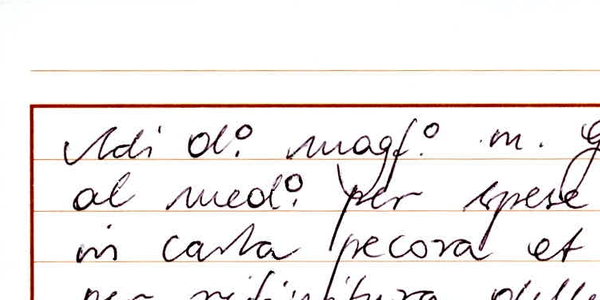 Adi do. magfo. m. G
al medo. per spese
in carta pecora et
per